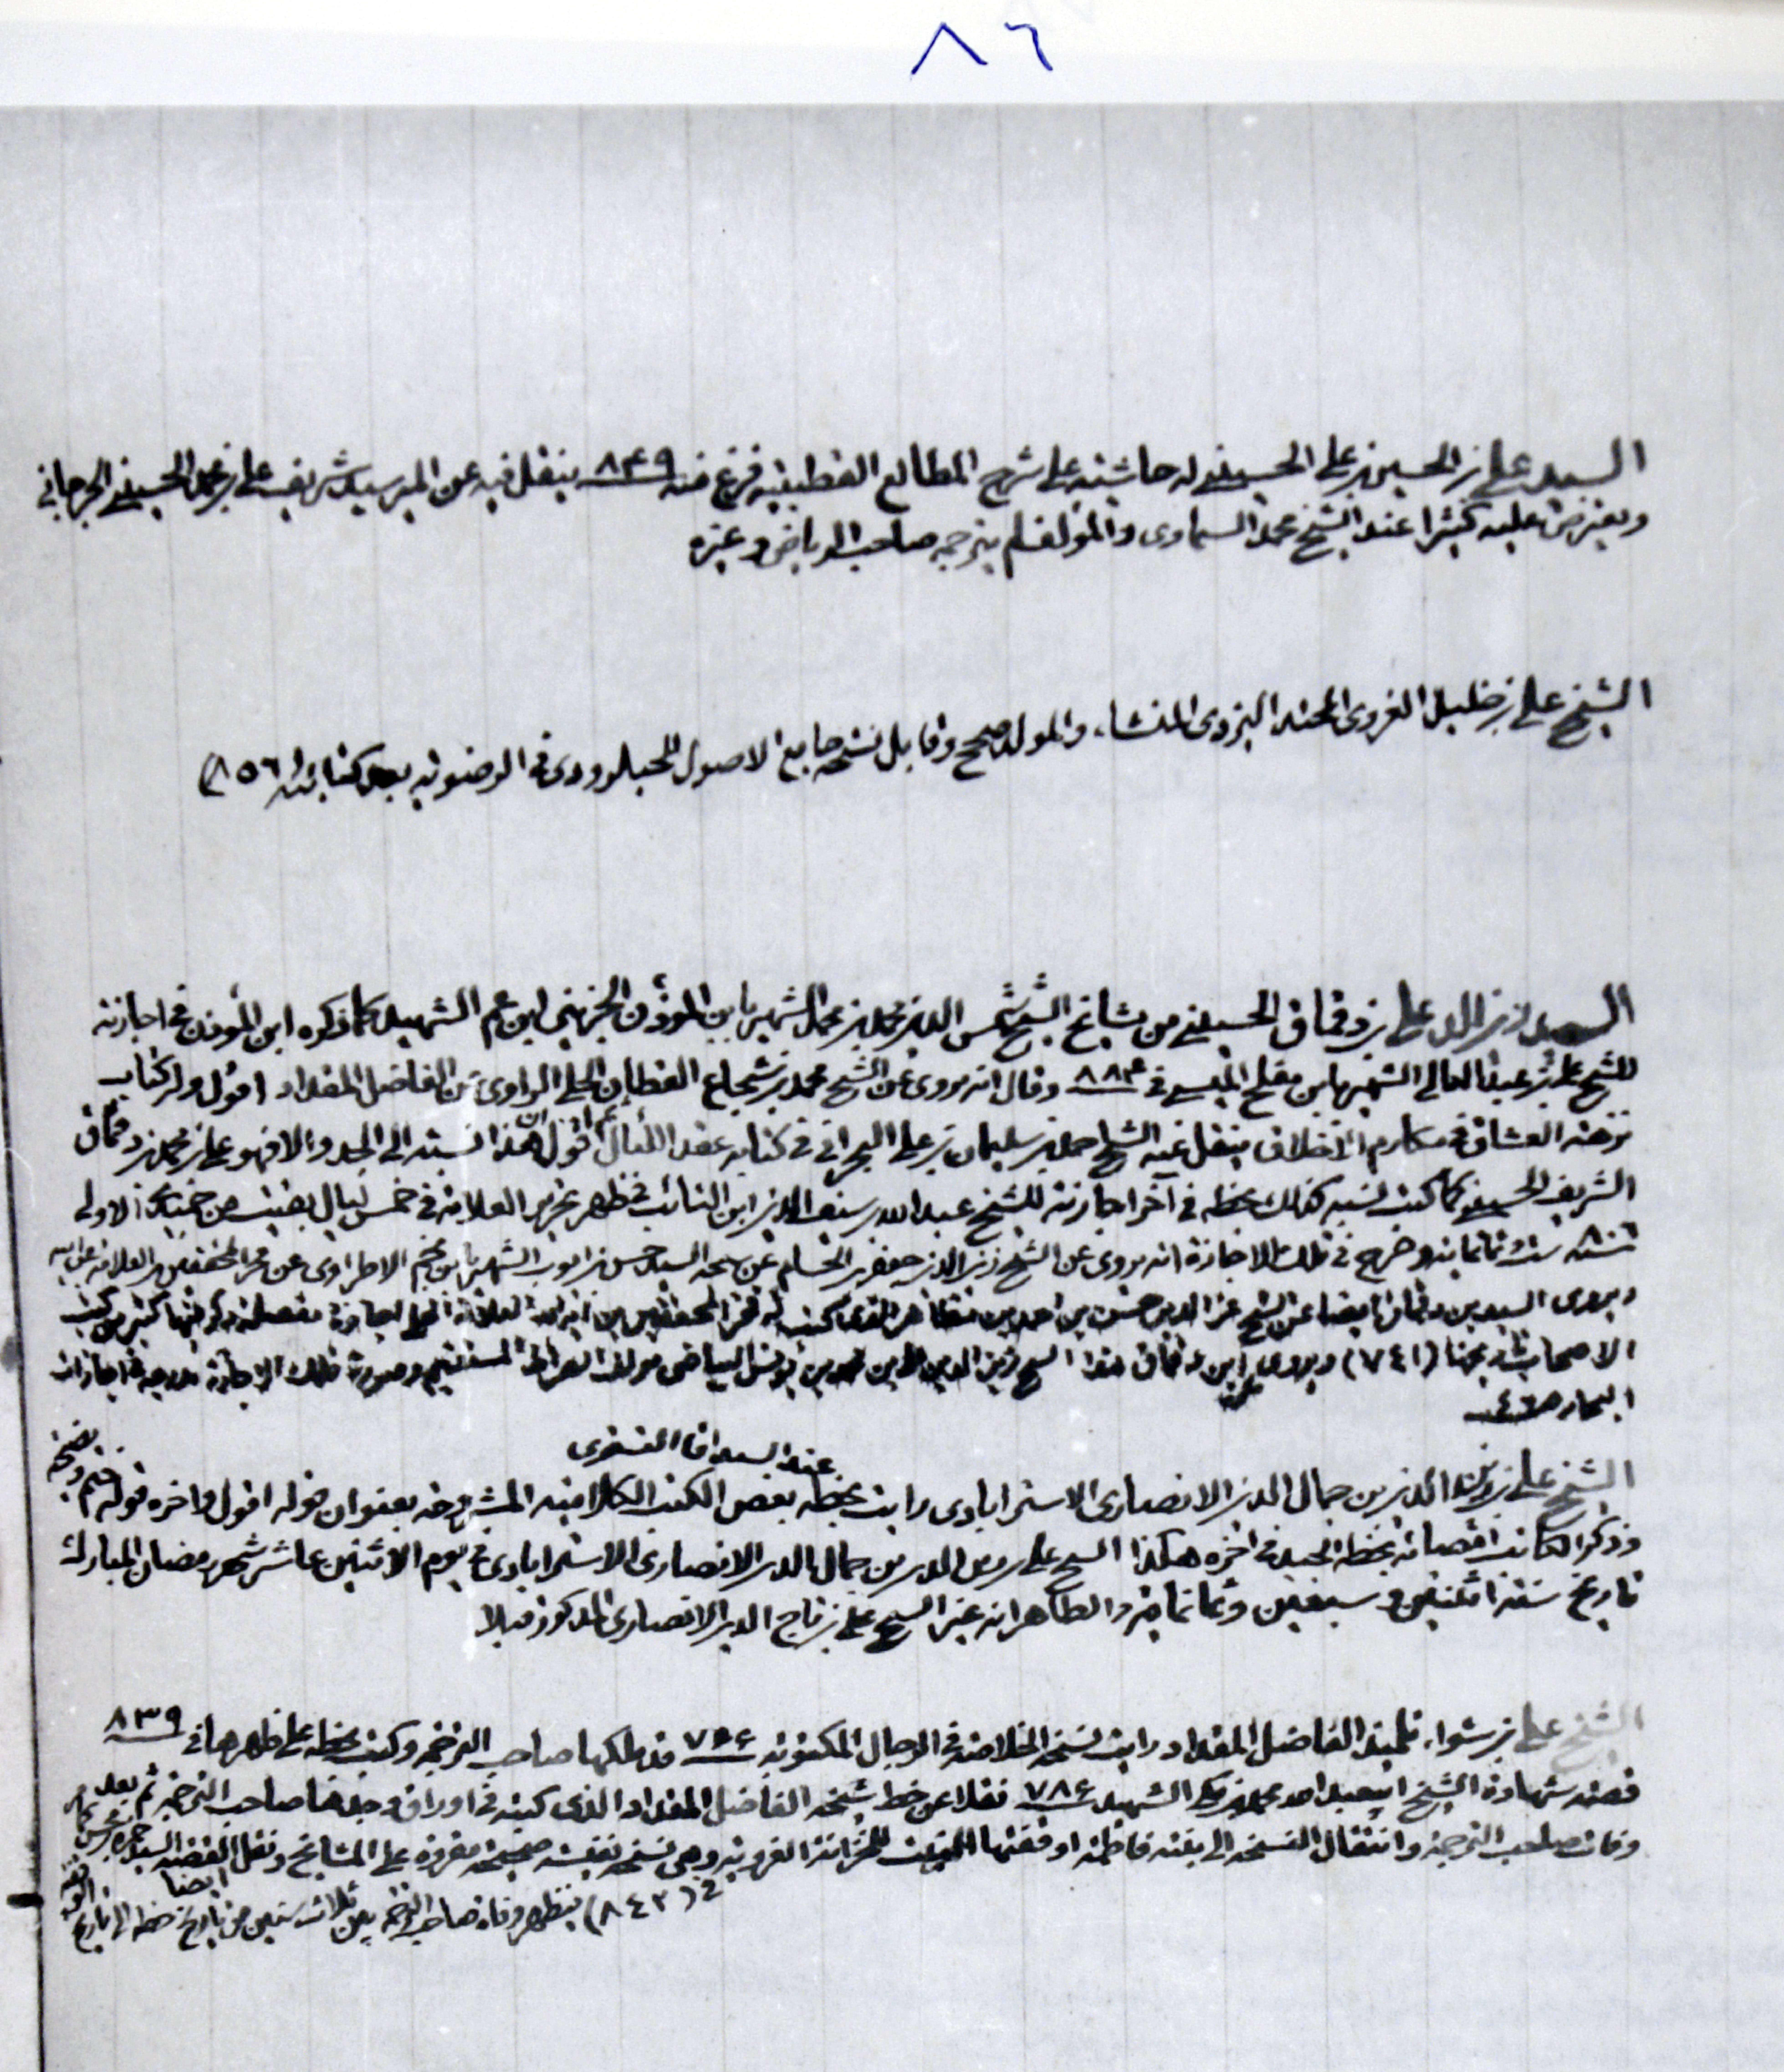 ٨٦
السيد علي بن الحسين بن علي الحسيني له حاشية على شرح المطالع القطبية فرغ منه ٨٤٩ ينقل فيه عن المير سيد شريف علي بن محمد الحسيني الجرجاني
ويعترض عليه كثيرا عند الشيخ محمد السماوى والمؤلف لم يترجمه صاحب الرياض وغيره
الشيخ علي بن خليل الغروى المحتد اليزدى المنشاء والمولد صحح وقابل نسخة جامع الاصول للحبلرودى في الرضوية بعد كتابته (٨٥٦)
السيد زين الدين علي بن دقماق الحسيني من مشايخ الشيخ شمس الدين محمد بن محمد الشهير بابن المؤذن الجزيني ابن عم الشهيد كما ذكره ابن المؤذن في اجازته
للشيخ علي بن عبد العالي الشهير بابن مفلح الميسي في ٨٨٤ وقال انه يروى عن الشيخ محمد بن شجاع القطان الحلي الراوى عن الفاضل المقداد اقول وله كتاب
نزهة العشاق في مكارم الاخلاق ينقل عنه الشيخ احمد بن سليمان بن علي البحراني في كتابه عقد اللئال ثم اقول ان هذا نسبته الى الجد والا فهو علي بن محمد بن دقماق
الشريف الحسيني كما كتب نسبه كذلك بخطه في آخر اجازته للشيخ عبد الله بن سيف الدين ابن النائب في ظهر تحرير العلامة في خمس ليال بقيت من جميد الاولى
٨٠٦ سنة ست ثمانمائة وصرح في تلك الاجازة انه يروى عن الشيخ زين الدين جعفر بن الحسام عن شيخه السيد حسن بن ايوب الشهير بابن نجم الاطراوى عن فخر المحققين عن العلامة عن ابيه
ويروى السيد بن دقماق ايضا عن الشيخ عز الدين حسن بن احمد بن مظاهر الذى كتب له فخر المحققين بن آية الله العلامة الحلي اجازة مفصلة ذكر فيها كثير من كتب
الاصحاب تاريخها (٧٤١) ويروى عن ابن دقماق هذا الشيخ زين الدين علي بن محمد بن يونس البياضي مؤلف الصراط المستقيم وصورة تلك الاجازة مدرجة في اجازات
البحار ص ٤٦
عند السيد اقا التسترى
الشيخ علي بن الدين بن جمال الدين الانصارى الاسترابادى رايت بخطه بعض الكتب الكلامية المشروحة بعنوان قوله اقول واخره قوله
وذكر الكاتب امضائه بخطه الجيد في اخره هكذا الشيخ علي بن الدين بن جمال الدين الانصارى الاسترابادى في يوم الاثنين عاشر شهر رمضان المبارك
تاريخ سنة اثنتين وسبعين وثمانمائة والظاهر انه غير الشيخ علي بن تاج الدين الانصارى المذكور قبلا
الشيخ علي بن شواء تلميذ الفاضل المقداد رايت نسخة الخلاصة في الرجال المكتوبة ٧٦٦ قد ملكها صاحب الترجمة وكتب بخطه على ظهرها في ٨٣٩
قصة شهادة الشيخ ابي عبد الله محمد بن مكي الشهيد ٧٨٦ نقلا عن خط شيخه الفاضل المقداد الذى كتبه في اوراق وجدها صاحب الترجمة ثم بعد
وفات صاحب الترجمة وانتقال النسخة الى بنته فاطمة اوقفتها البنت للخزانة الغروية وهي نسخة نفيسة صحيحة مقروة على المشايخ ونقل القصة السيد ايضا
في (٨٤٢) فيظهر وفاة صاحب الترجمة بين ثلاث سنين من تاريخ خطه الى تاريخ